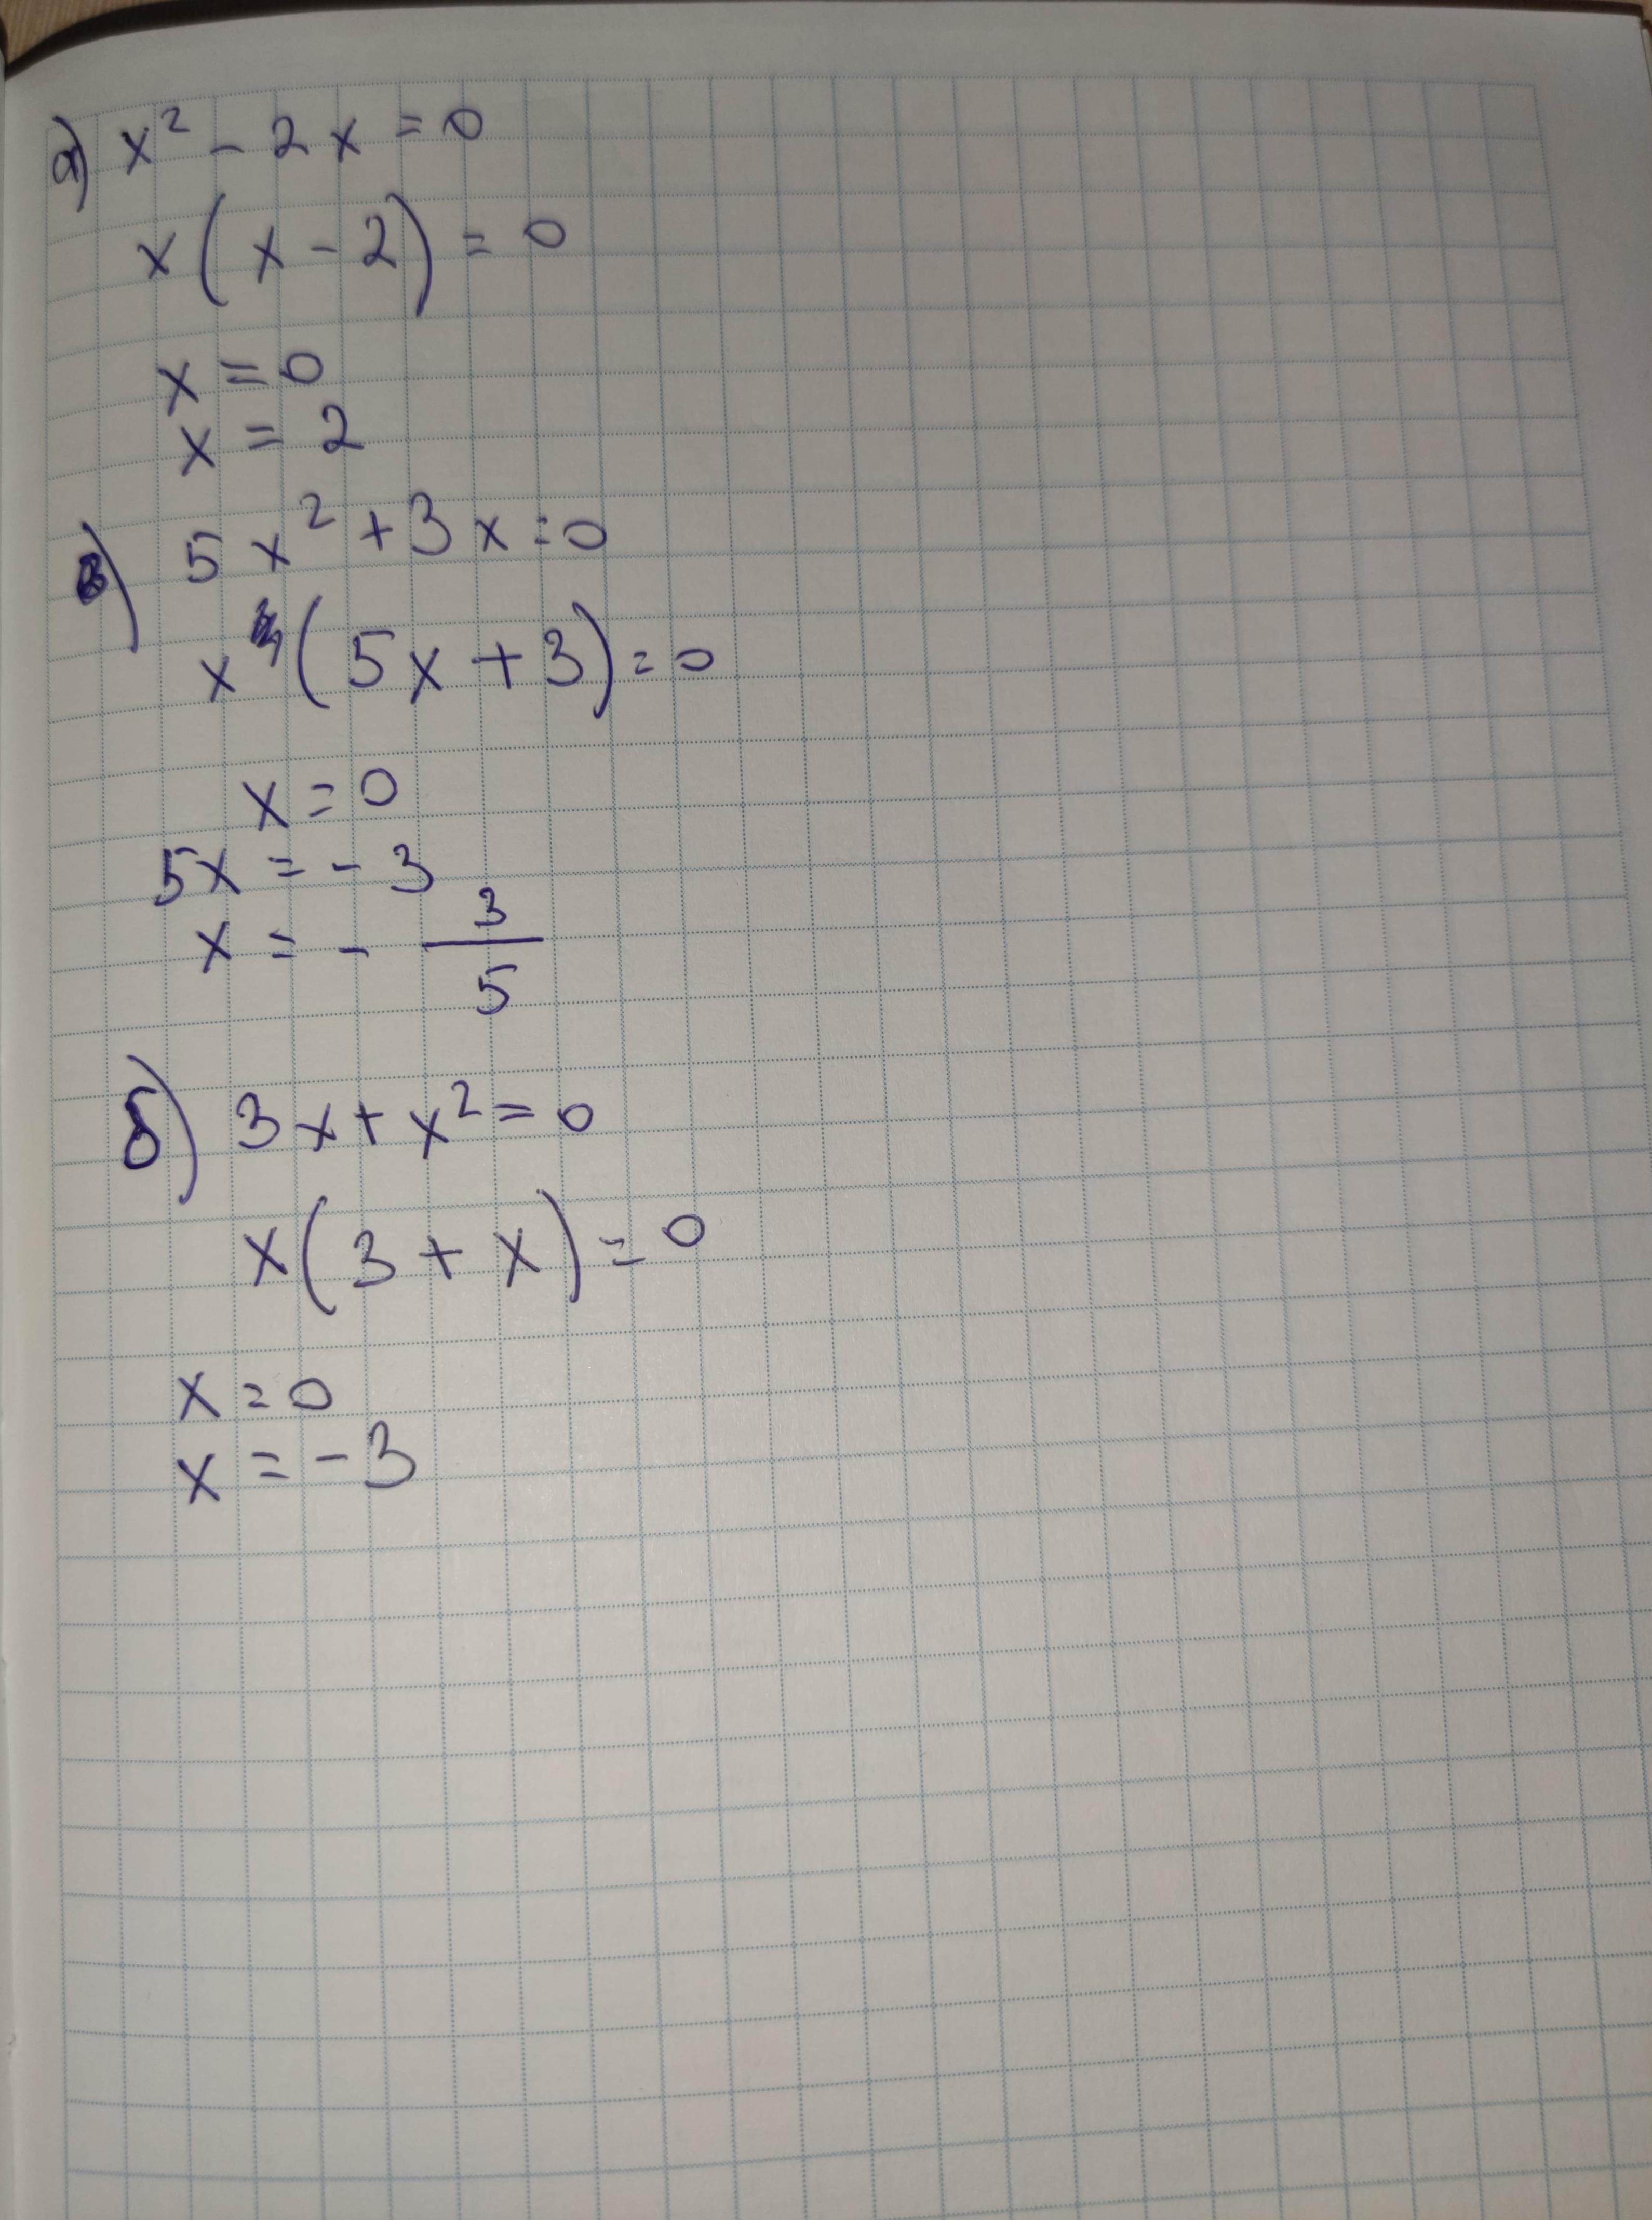 а) x² - 2x = 0
x(x - 2) = 0
x = 0
x = 2
в) 5x² + 3x = 0
x(5x + 3) = 0
x = 0
5x = - 3
x = - 3/5
б) 3x + x² = 0
x(3 + x) = 0
x = 0
x = -3